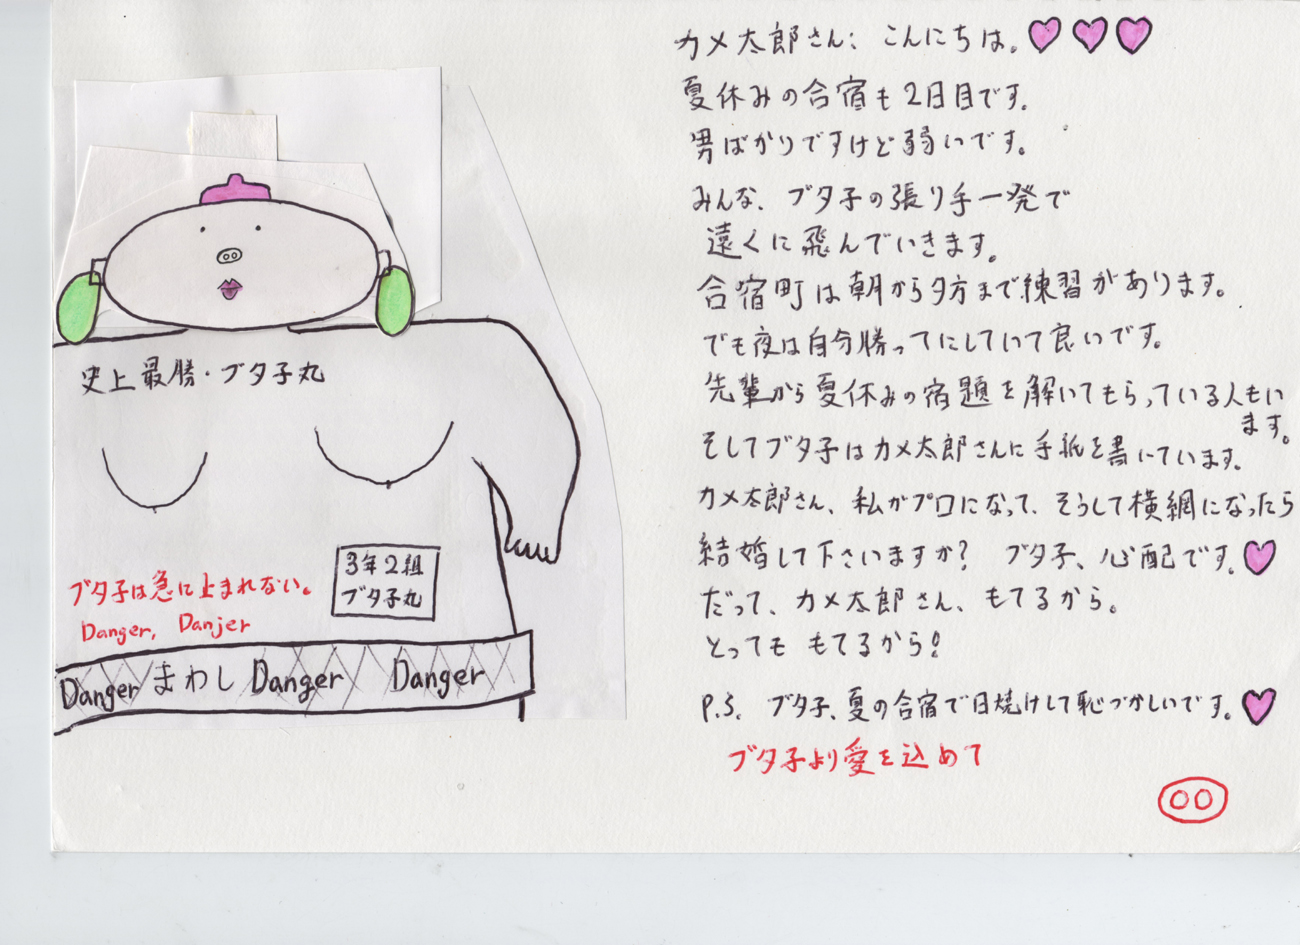 史上最勝・ブタ子丸
3年2組
ブタ子丸
ブタ子は急に止まれない。
Danger, Danjer
Danger まわし Danger Danger
カメ太郎さん; こんにちは。
夏休みの合宿も2日目です。
男ばかりですけど弱いです。
みんな、ブタ子の張り手一発で
遠くに飛んでいきます。
合宿町は朝から夕方まで練習があります。
でも夜は自分勝ってにしていて良いです。
先輩から夏休みの宿題を解いてもらっている人もい
ます。
そしてブタ子はカメ太郎さんに手紙を書いています。
カメ太郎さん、私がプロになって、そうして横網になったら
結婚して下さいますか? ブタ子、心配です。
だって、カメ太郎さん、もてるから。
とっても もてるから!
P.S. ブタ子、夏の合宿で日焼けして恥づかしいです。
ブタ子より愛を込めて